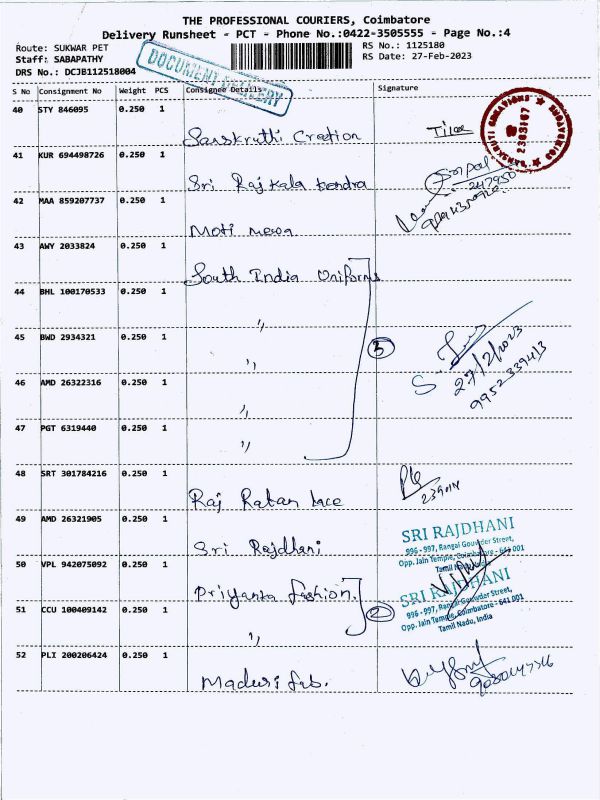 THE PROFESSIONAL COURIERS, Coimbatore
Delivery Runsheet - PCT - Phone No.:0422-3505555 - Page No.:4
Route: SUKWAR PET
Staff: SABAPATHY
DRS No.: DCJB112518004
RS No.: 1125180
RS Date: 27-Feb-2023
DOCUMENT DELIVERY
S No Consignment No Weight PCS Consignee Details Signature
40 STY 846095 0.250 1
Sanskruthi Creation
41 KUR 694498726 0.250 1
Sri Rajkala kendra
42 MAA 859207737 0.250 1
Moti mewa
43 AWY 2033824 0.250 1
South India Uniforms
44 BHL 100170533 0.250 1
"
45 BWD 2934321 0.250 1
"
5
27/2/2023
46 AMD 26322316 0.250 1
"
47 PGT 6319440 0.250 1
"
48 SRT 301784216 0.250 1
Raj Ratan lace
49 AMD 26321905 0.250 1
Sri Rajdhani
SRI RAJDHANI
996 - 997, Rangai Gowder Street,
Opp. Jain Temple, Coimbatore - 641 001
Tamil Nadu, India
50 VPL 942075092 0.250 1
Priyanka fashion.
SRI RAJDHANI
996 - 997, Rangai Gowder Street,
Opp. Jain Temple, Coimbatore - 641 001
Tamil Nadu, India
51 CCU 100409142 0.250 1
"
2
52 PLI 200206424 0.250 1
Maduri fab.